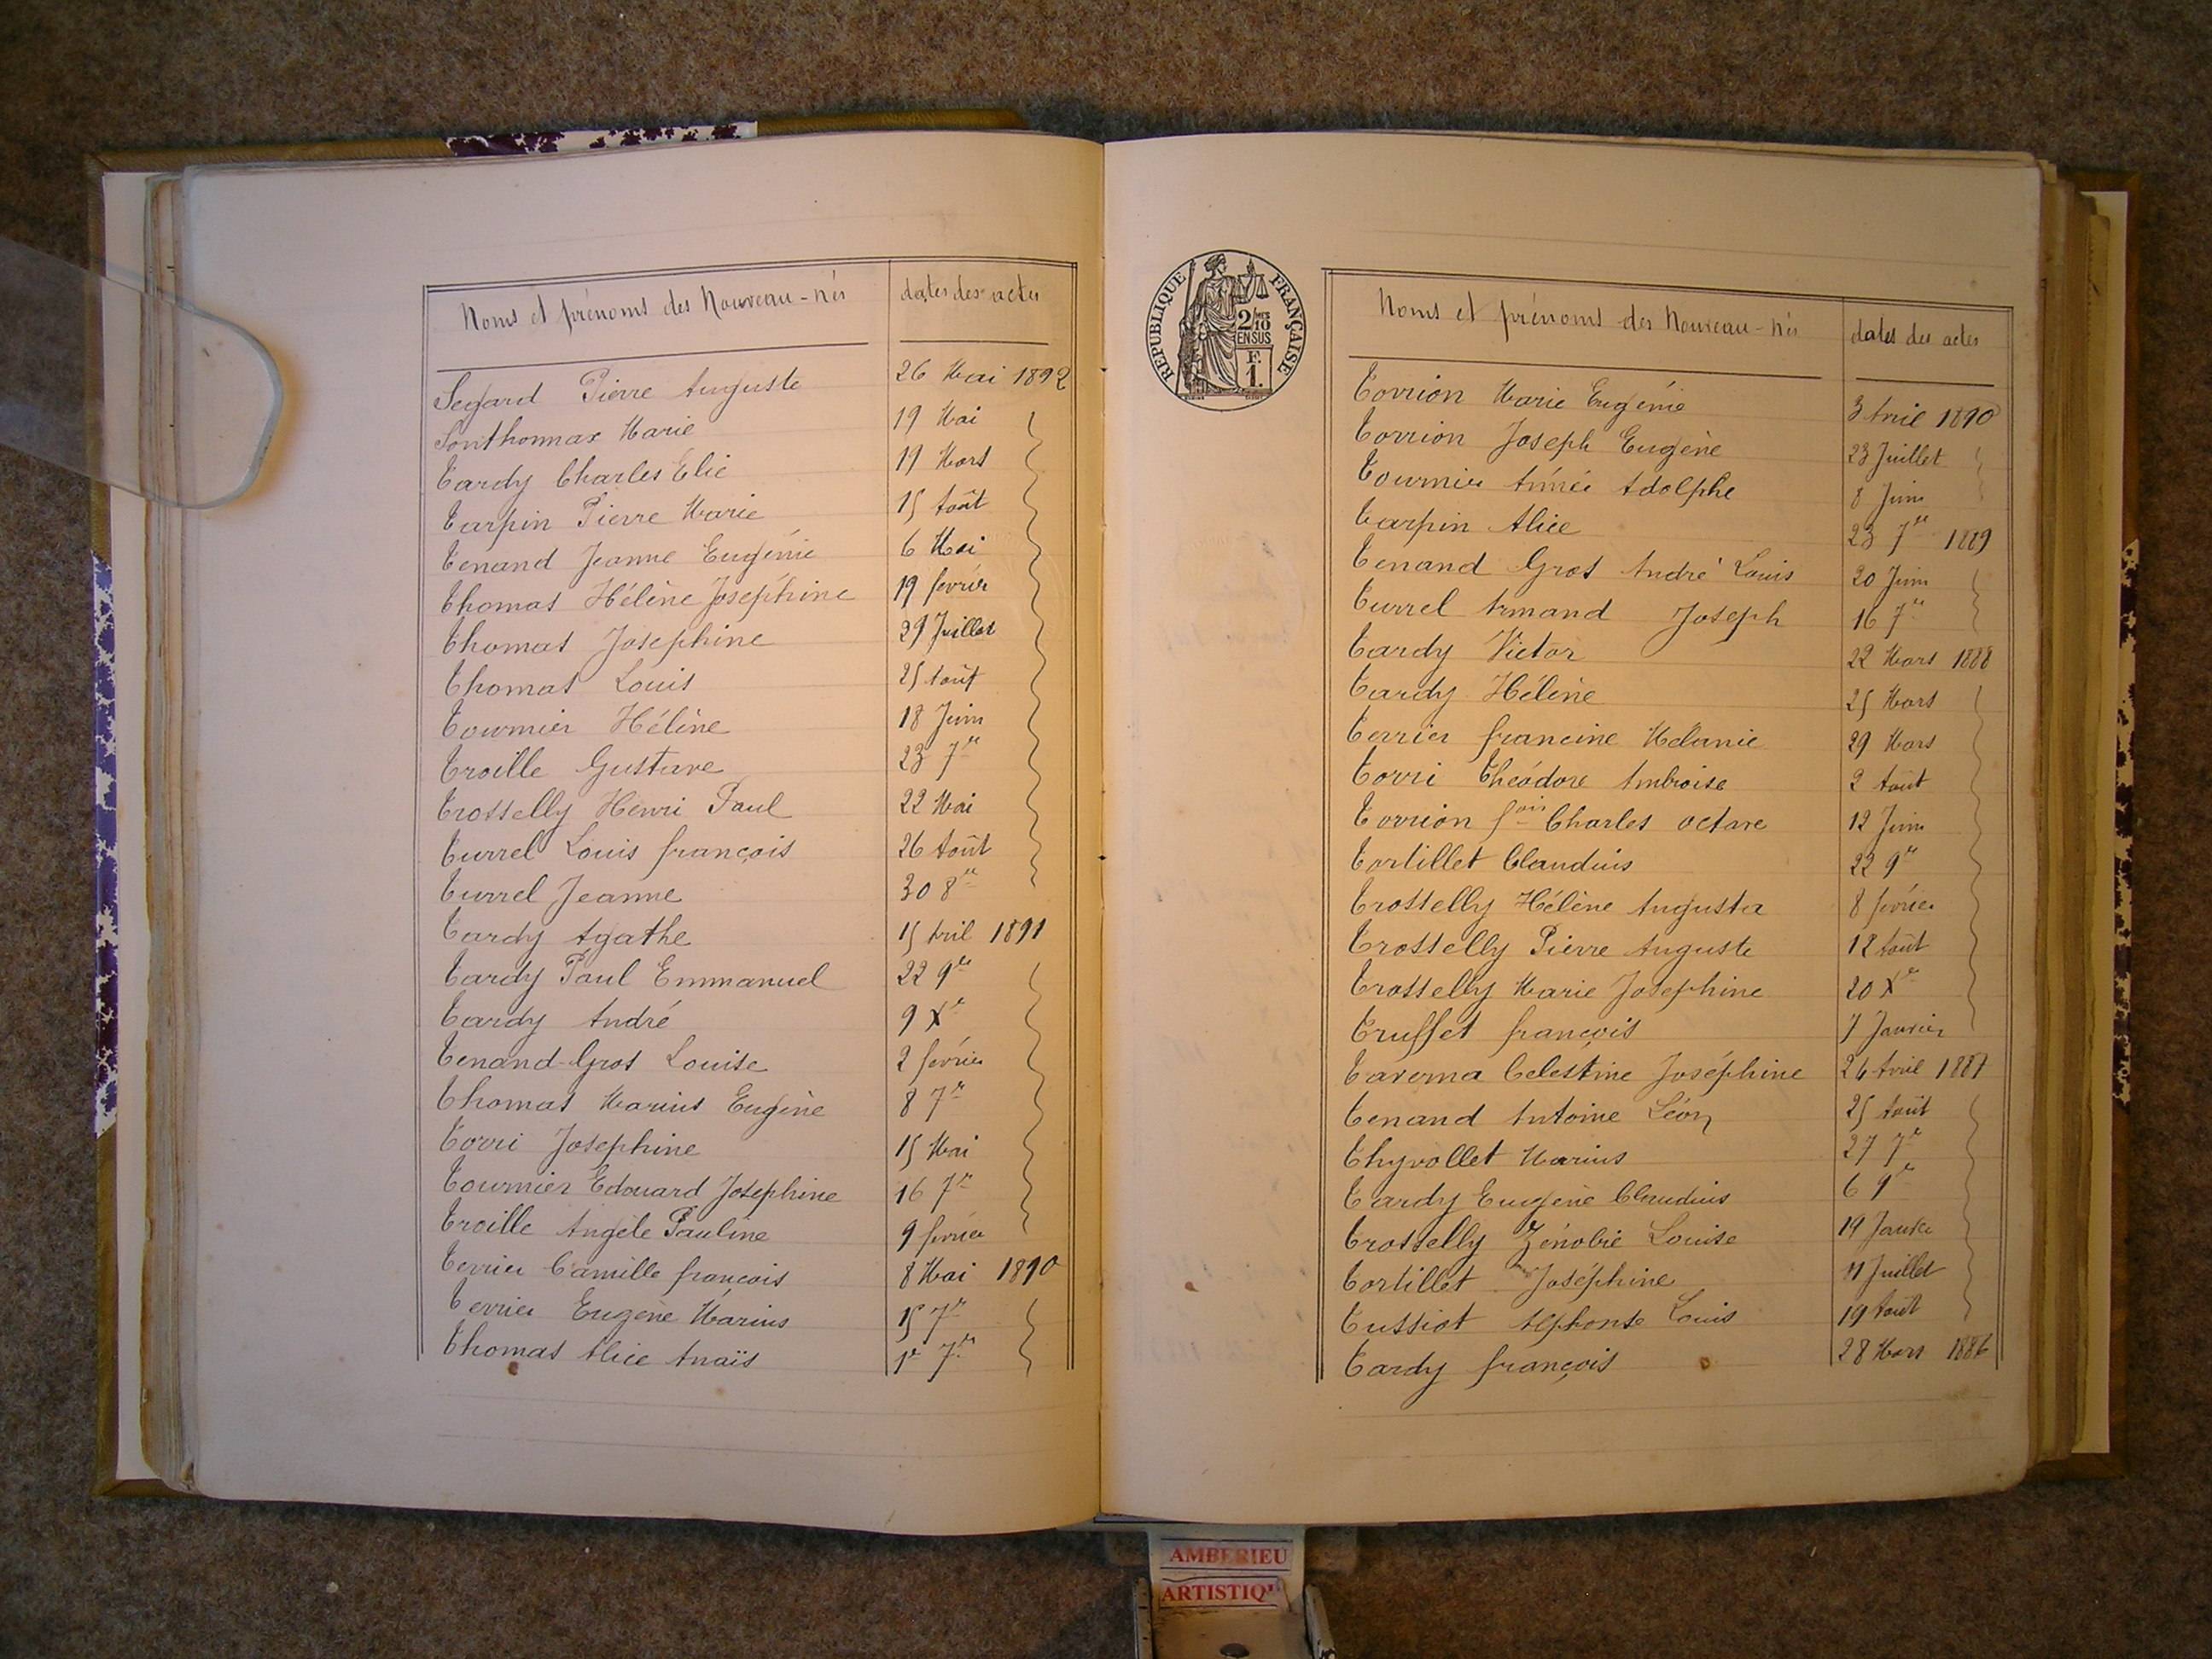 Noms et prénoms des Nouveau-nés dates des actes
Segard Pierre Auguste 26 Mai 1892
Sonthonnax Marie 19 Mai
Tardy Charles Elie 19 Mars
Tarpin Pierre Marie 15 Août
Tenand Jeanne Eugénie 6 Mai
Thomas Hélène Joséphine 19 février
Thomas Joséphine 29 Juillet
Thomas Louis 25 Août
Tournier Hélène 18 Juin
Troille Gustave 23 7re
Trosselly Henri Paul 22 Mai
Turrel Louis françois 26 Août
Turrel Jeanne 30 8re
Tardy Agathe 15 Avril 1891
Tardy Paul Emmanuel 22 9re
Tardy André 9 Xre
Tenand-Gros Louise 2 février
Thomas Marius Eugène 8 7re
Torri Joséphine 15 Mai
Tournier Edouard Joséphine 16 7re
Troille Angèle Pauline 9 février
Terrier Camille françois 8 Mai 1890
Terrier Eugène Marius 15 7re
Thomas Alice Anaïs 1er 7re
REPUBLIQUE FRANÇAISE
2/10 MES
EN SUS
F.
1.
Noms et prénoms des Nouveau-nés dates des actes
Torrion Marie Eugénie 3 Avril 1890
Torrion Joseph Eugène 23 Juillet
Tournier Aimée Adolphe 8 Juin
Tarpin Alice 23 7re 1889
Tenand Gros André Louis 20 Juin
Turrel Armand Joseph 16 7re
Tardy Victor 22 Mars 1888
Tardy Hélène 25 Mars
Terrier francine Mélanie 29 Mars
Torri Théodore Ambroise 2 Août
Torrion fois Charles octave 12 Juin
Tortillet Claudius 22 9re
Trosselly Hélène Augusta 8 février
Trosselly Pierre Auguste 18 Août
Trosselly Marie Joséphine 20 Xre
Truffet françois 7 Janvier
Taverna Celestine Joséphine 26 Avril 1887
Tenand Antoine Léon 25 Août
Thyvollet Marius 27 7re
Tardy Eugène Claudius 6 9re
Trosselly Zénobie Louise 19 Janvier
Tortillet Joséphine 11 Juillet
Tussiot Alphonse Louis 19 Août
Tardy françois 28 Mars 1886
AMBERIEU
ARTISTIQU